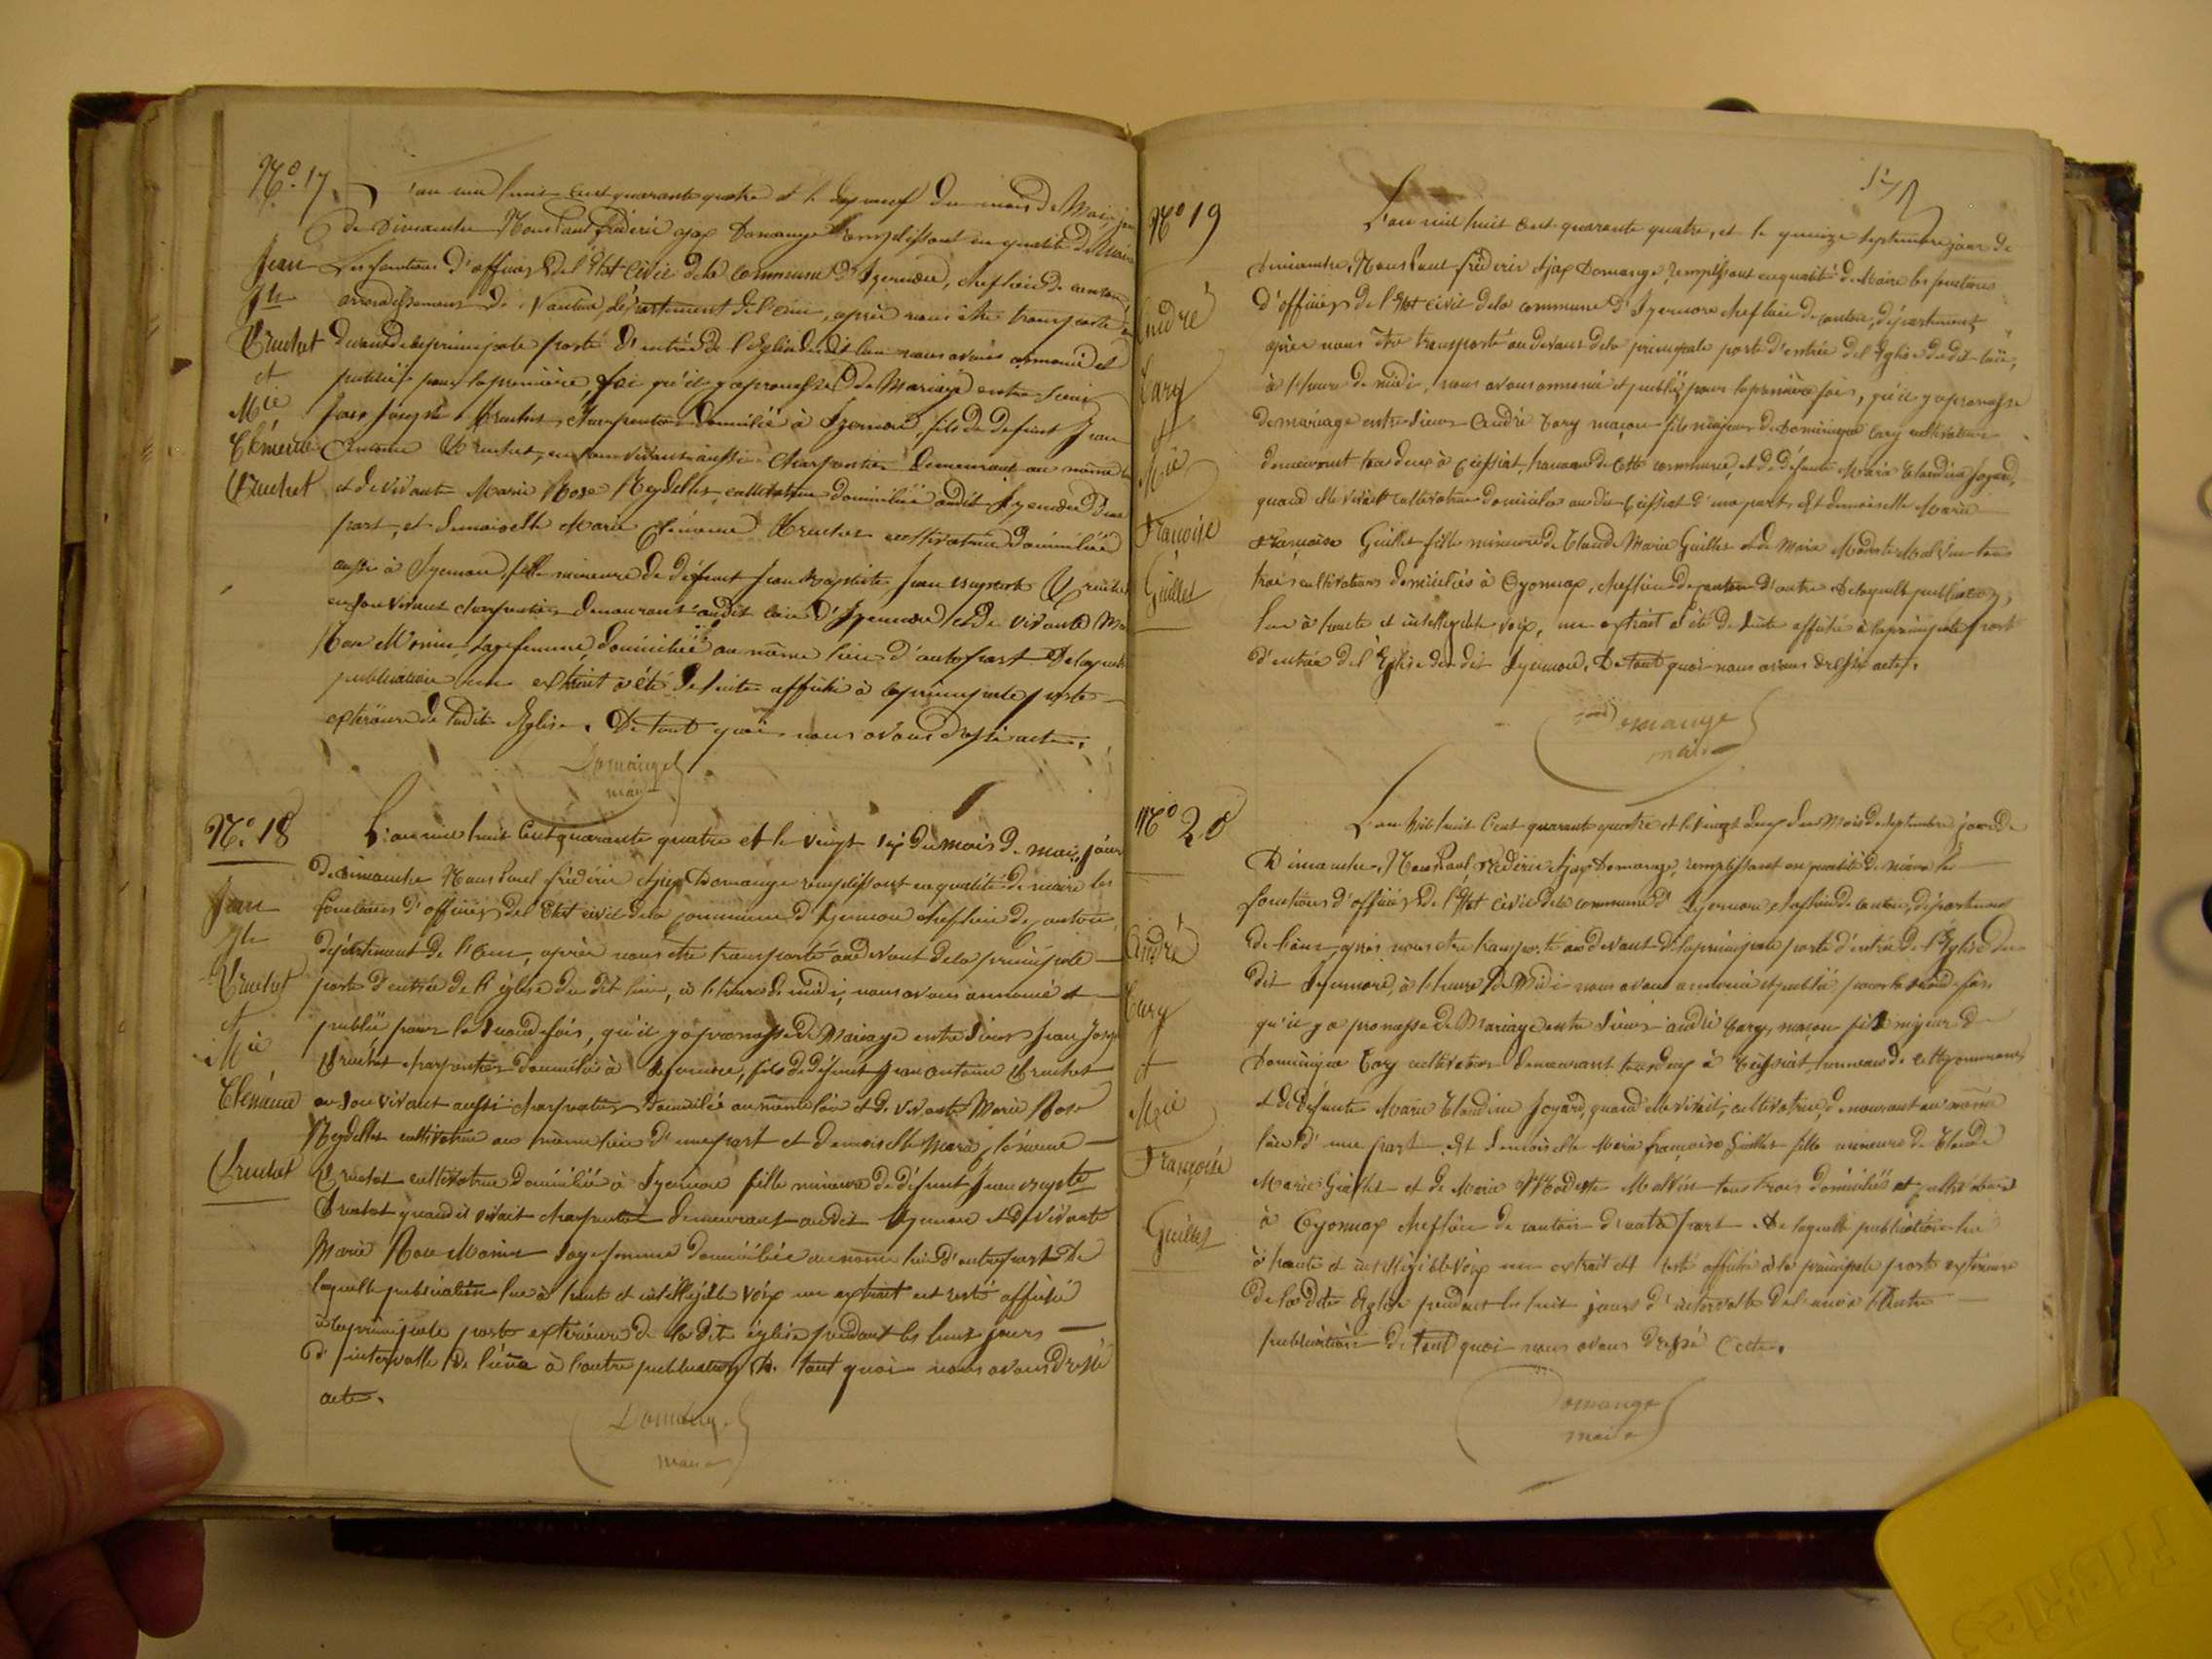 No. 17
Jean
Jh
Truchet
et
Mie
Clémence
Truchet
L'an mil huit cent quarante quatre et le dix neuf du mois de Mai, jour
de Dimanche Nous Paul frédéric ajax Domange remplissant en qualité de Maire
les fonctions d'officier de l'Etat Civil de la commune d'Izernore, chef lieu de canton,
arrondissement de Nantua département de l'ain, après nous être transporté au
devant de la principale porte d'entrée de l'église du dit lieu nous avons annoncé et
publié pour la première fois qu'il y a promesse de Mariage entre sieur
Jean Joseph Truchet, charpentier domicilié à Izernore, fils de defunt Jean
Antoine Truchet, en son vivant aussi charpentier demeurant au même lieu
et de vivante Marie Rose Reydellet, cultivatrice domiciliée audit Izernore d'une
part, et demoiselle Marie Clémence Truchet cultivatrice domiciliée
aussi à Izernore, fille mineure de défunt Jean Baptiste Truchet
en son vivant charpentier demeurant audit lieu d'Izernore et de vivante Mie
Rose Monin, sagefemme, domiciliée au même lieu d'autre part De laquelle
publication un extrait a été de suite affiché à la principale porte
extérieure de ladite Eglise. De tout quoi nous avons dressé acte.
Domange
maire
No. 18
Jean
Jh
Truchet
et
Mie
Clémence
Truchet
L'an mil huit Cent quarante quatre et le vingt six du mois de mai, jour
de dimanche Nous Paul frédéric Ajax Domange remplissant en qualité de maire les
fonctions d'officier de l'Etat civil de la commune d'Izernore chef lieu de canton,
département de l'ain, après nous etre transporté au devant de la principale
porte d'entrée de l'église du dit lieu, à l'heure de midi, nous avons annoncé et
publié pour la seconde fois, qu'il y a promesse de Mariage entre sieur Jean Joseph
Truchet charpentier domicilié à Izernore, fils de défunt Jean Antoine Truchet
en son vivant aussi charpentier domicilié au même lieu et de vivante Marie Rose
Reydellet cultivatrice au même lieu d'une part et demoiselle Marie Clémence
Truchet cultivatrice domiciliée à Izernore fille mineure de défunt Jean Bapte
Truchet quand il vivait charpentier demeurant audit Izernore et de vivante
Marie Rose Monin sagefemme domiciliée au même lieu d'autre part De
laquelle publication lue à haute et intelligible voix un extrait est resté affiché
à la principale porte extérieure de la dite église pendant les huit jours
d'intervalle de l'une à l'autre publication De tout quoi nous avons dressé
acte.
Domange
maire
No 19
André
Tary
et
Mie
Françoise
Guillet
L'an mil huit cent quarante quatre, et le quinze septembre jour de
dimanche, Nous Paul fréderic Ajax Domange, remplissant en qualité de Maire les fonctions
d'officier de l'Etat civil de la commune d'Izernore chef lieu de canton, département
après nous être transporté au devant de la principale porte d'entrée de l'Eglise du dit lieu,
à l'heure de midi, nous avons annoncé et publié pour la première fois, qu'il y a promesse
de mariage entre sieur André Tary maçon fils majeur de Dominique Tary cultivateur
demeurant tous deux à Ceissiat, hameau de cette commune, et de défunte Marie Claudine Joyard,
quand elle vivait cultivatrice domiciliée au dit Ceissiat d'une part, Et demoiselle Marie
Françoise Guillet fille mineure de Claude Marie Guillet et de Marie Modeste tous
trois cultivateurs domiciliés à Oyonnax, chef lieu de canton d'autre De laquelle publication,
lue à haute et intelligible voix, un extrait a été de suite affiché à la principale porte
d'entrée de l'Eglise du dit Izernore. De tout quoi nous avons dressé acte.
Domange
maire
No 20
André
Tary
et
Mie
Françoise
Guillet
L'an mil huit Cent quarante quatre et le vingt deux du Mois de septembre jour de
Dimanche, Nous Paul, Fréderic Ajax Domange, remplissant en qualité de maire les
fonctions d'officier de l'Etat Civil de la commune d'Izernore chef lieu de canton, département
de l'ain, après nous etre transporté au devant de la principale porte d'entrée de l'Eglise du
dit Izernore, à l'heure de Midi nous avons annoncé et publié pour la seconde fois
qu'il y a promesse de Mariage entre sieur andré Tary, maçon fils majeur de
Dominique Tary cultivateur demeurant tous deux à Ceissiat, hameau de cette commune
et de défunte Marie Claudine Joyard, quand elle vivait, cultivatrice, demeurant au même
lieu d'une part. Et demoiselle Marie françoise Guillet fille mineure de Claude
Marie Guillet et de Marie Modeste tous trois domiciliés et cultivateurs
à Oyonnax chef lieu de canton d'autre part De laquelle publication lue
à haute et intelligible voix un extrait est resté affiché à la principale porte extérieure
de la dite Eglise pendant les huit jours d'intervalle de l'une à l'autre
publication de tout quoi nous avons dressé acte.
Domange
maire